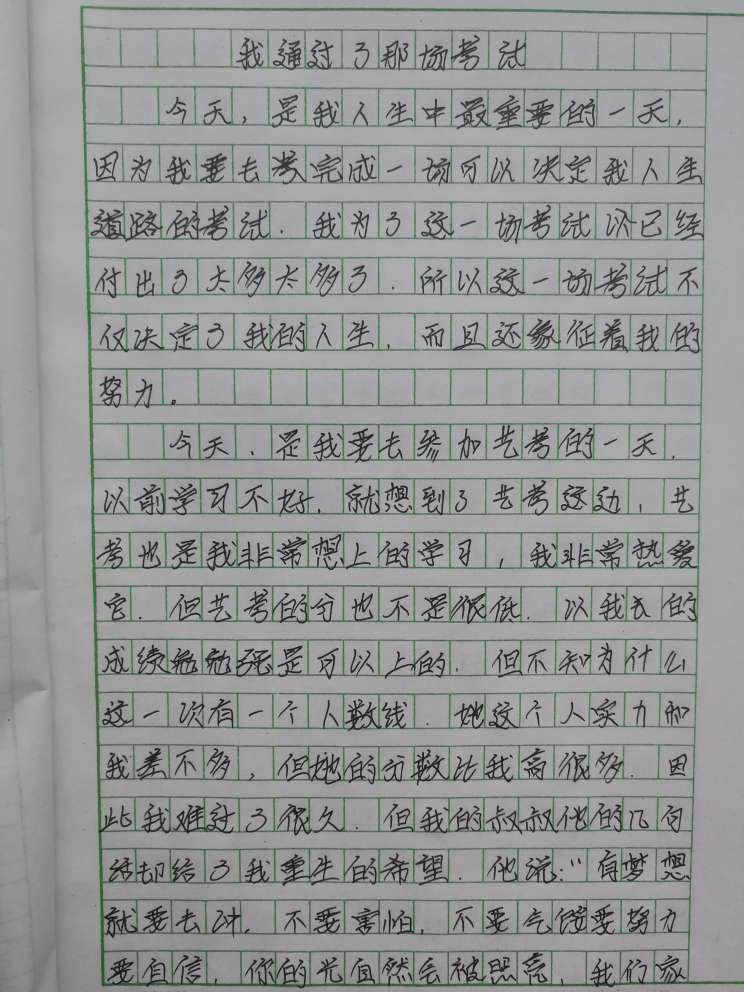 我通过了那场考试
今天，是我人生中最重要的一天，
因为我要去考完成一场可以决定我人生
道路的考试．我为了这一场考试以已经
付出了太多太多了．所以这一场考试不
仅决定了我的人生，而且还象征着我的
努力。
今天．是我要去参加艺考的一天，
以前学习不好．就想到了艺考这边，艺
考也是我非常想上的学习，我非常热爱
它．但艺考的分也不是很低．以我的
成绩勉勉强是可以上的．但不知为什么
这一次有一个人数线．她这个人实力和
我差不多，但她的分数比我高很多．因
此我难过了很久．但我的叔叔他的几句
话却给了我重生的希望．他说：“有梦想
就要去冲．不要害怕，不要气馁要努力
要自信，你的光自然会被照亮，我们家